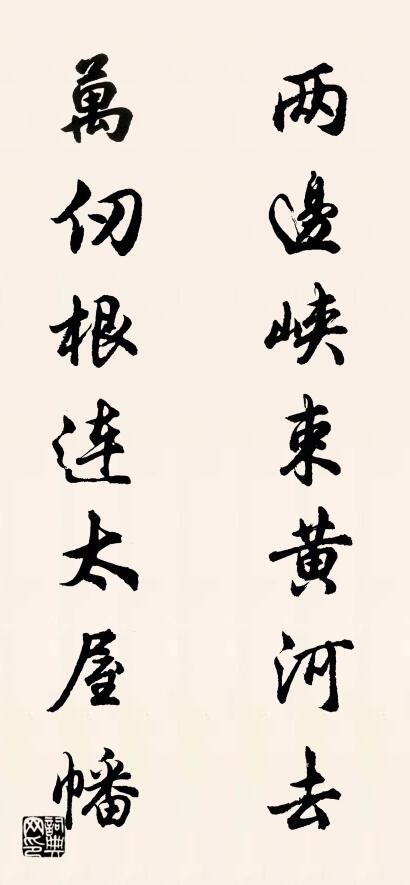 两邊峽束黄河去
萬仞根連太屋幡
詞典网印